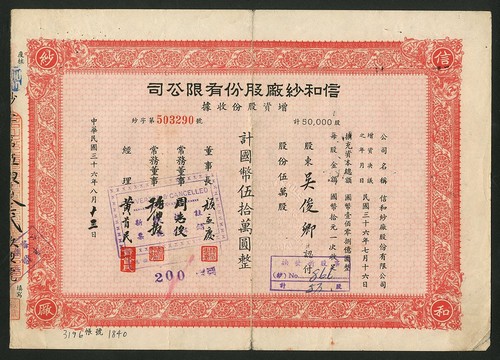 信和紗廠股份有限公司
增資股份收據
紗字第 503290 號
計50,000股
公司名稱 信和紗廠股份有限公司
增資決議之年月日 民國三十六年七月十六日
擴充資本總額 國幣壹佰零捌億圓整
每股金額 國幣拾元一次收足
股東 吳俊卿 認付
股份伍萬股
計國幣伍拾萬圓整
董事長
常務董事
常務董事
經理 黃首民
中華民國三十六年八月十三日
CANCELLED
200
(紗) No. 866
計 股
信
和
紗
廠
3196 帳號 1840